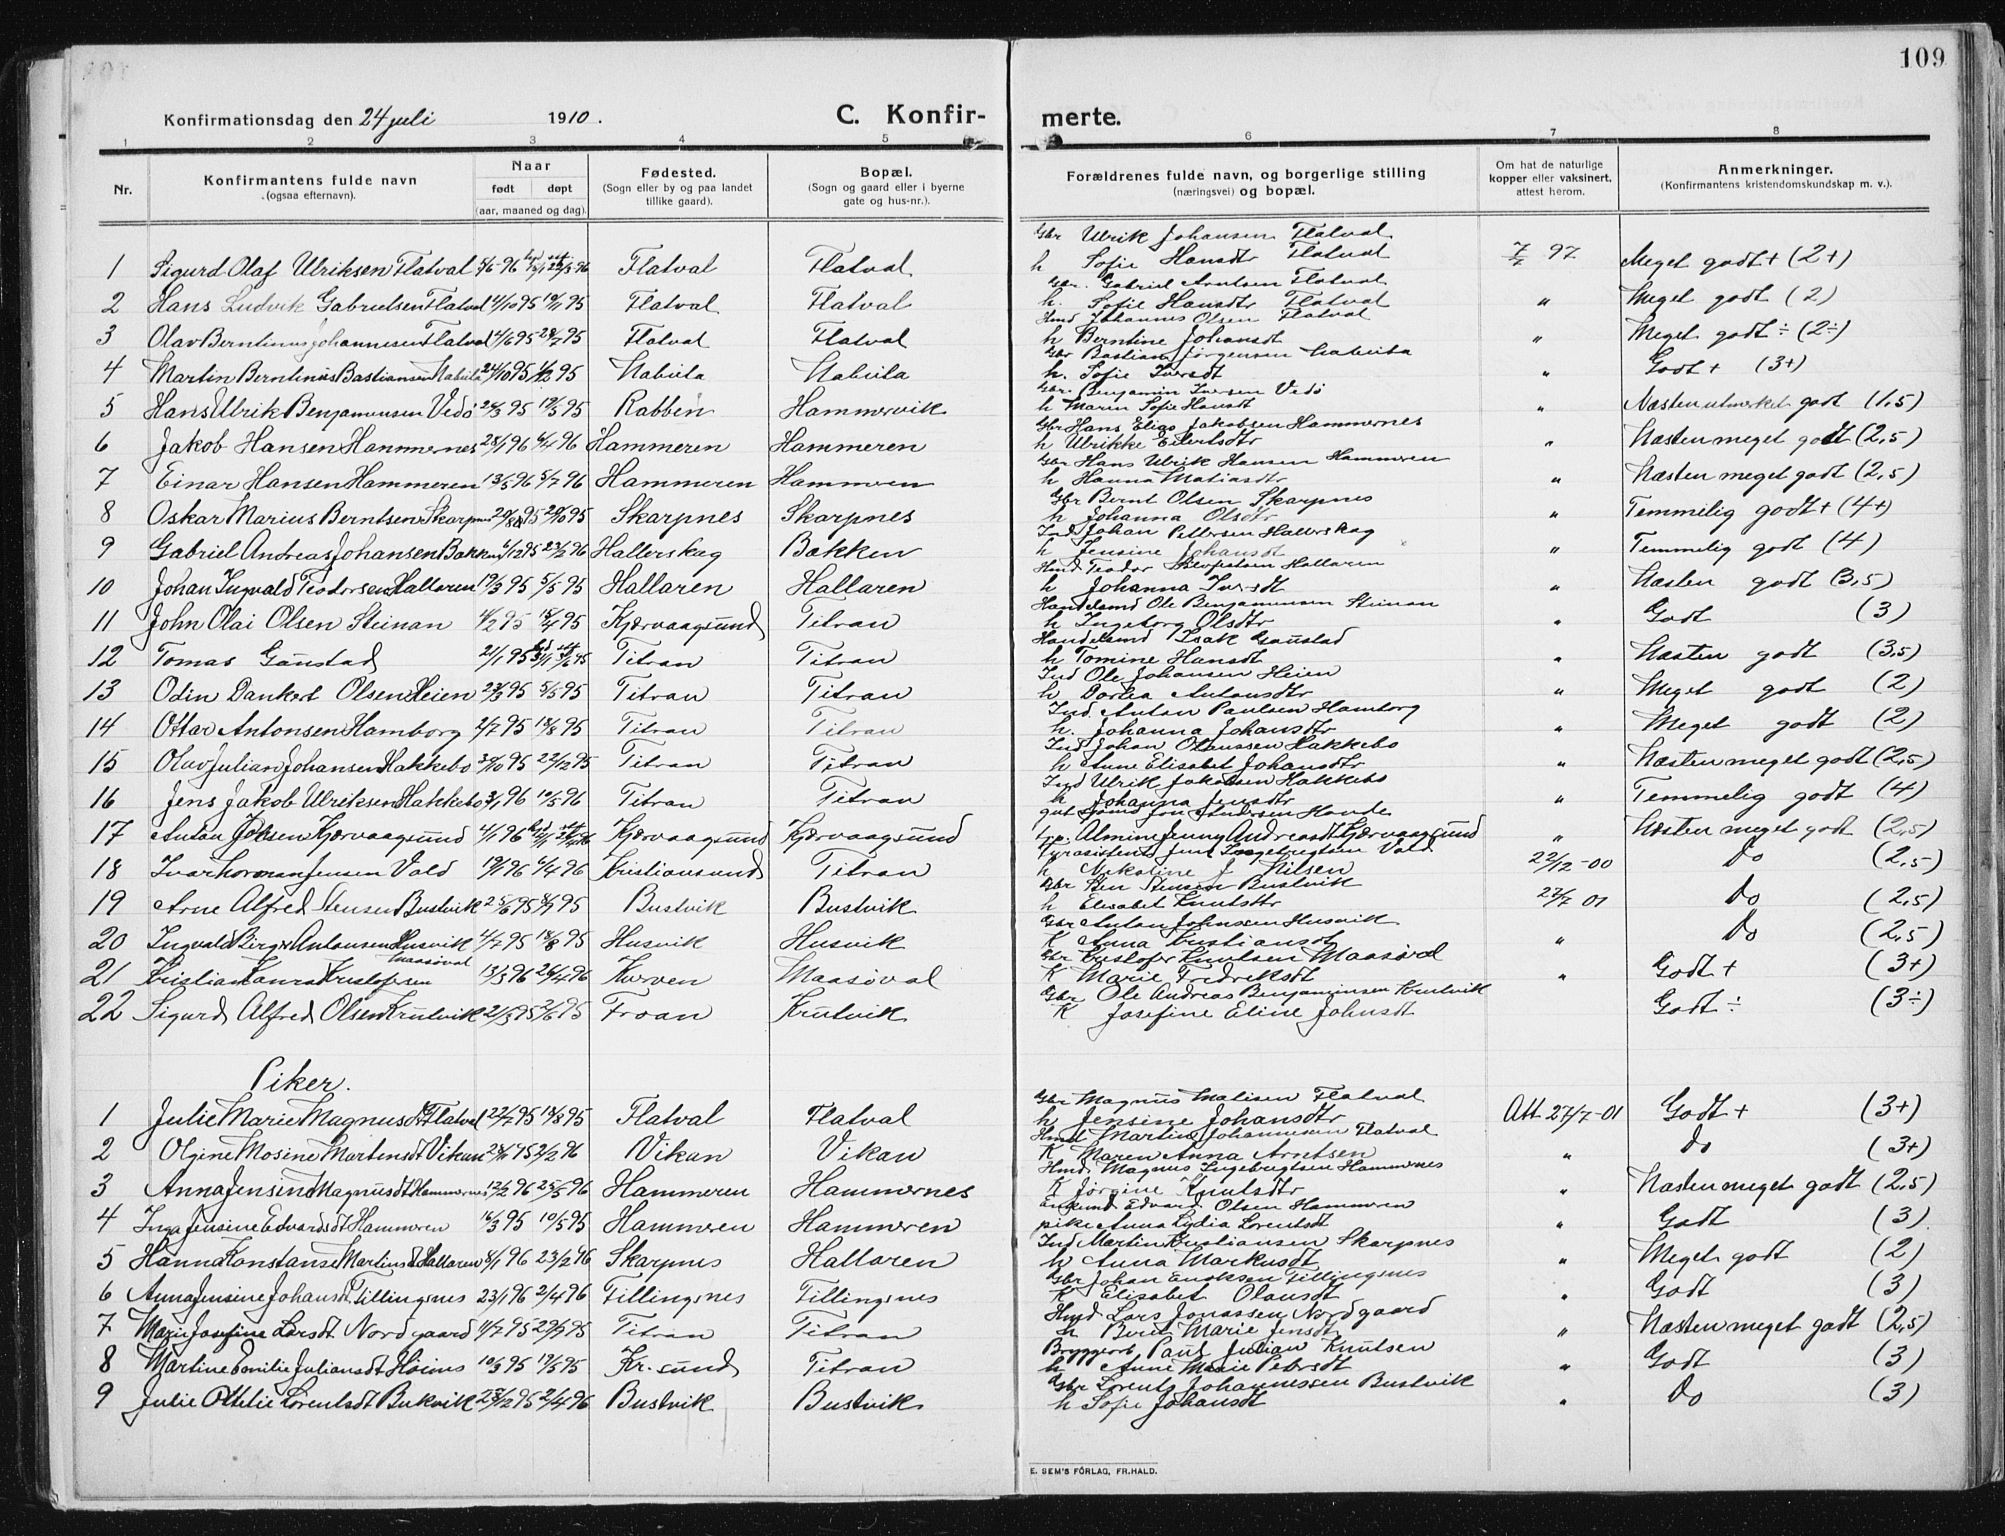 109
Konfirmationsdag den 24 juli 1910. C. Konfir- merte.
1 2 3 4 5 6 7 8
Nr. Konfirmantens fulde navn (ogsaa efternavn). Naar født døpt (aar, maaned og dag). Fødested. (Sogn eller by og paa landet tillike gaard). Bopæl. (Sogn og gaard eller i byerne gate og hus-nr.). Forældrenes fulde navn, og borgerlige stilling (næringsvei) og bopæl. Om hat de naturlige kopper eller vaksinert, attest herom. Anmerkninger. (Konfirmantens kristendomskundskap m. v.).
Gbr Ulrik Johansen Flatval
1 Sigurd Olaf Ulriksen Flatval Flatval Flatval h Sofie Hansdtr Flatval 97 Meget godt + (2+)
Gbr. Gabriel Arntsen Flatval
2 Hans Ludvik Gabrielsen Flatval 95 95 Flatval Flatval h. Sofie Hansdtr Flatval " Meget godt (2)
Hmd Johannes Olsen Flatval
3 Olav Berntinus Johannesen Flatval 95 95 Flatval Flatval h Berntine Johansdt " Meget godt ÷ (2÷)
Gbr Bastian Jørgensen Nabeita
4 Martin Berntinus Bastiansen 24/10 95 95 Nabeita Nabeita h. Sofie Iversdt " Godt + (3+)
Gbr. Benjamin Iversen Vedø
5 Hans Ulrik Benjaminsen Vedø 95 95 Rabben Hammervik h Maren Sofie Hansdt " Næsten utmerket godt (1,5)
Gbr Hans Elias Jakobsen Hammernes
6 Jakob Hansen Hammernes 28/1 96 6/4 96 Hammeren Hammeren h Ulrikke Eilertsdtr " Næsten meget godt (2,5)
Gbr Hans Ulrik Hansen Hammeren
7 Einar Hansen Hammeren 13/5 96 5/7 96 Hammeren Hammeren h Hanna Matiasdtr " Næsten meget godt (2,5)
Gbr Bernt Olsen Skarpnes
8 Oskar Marius Berntsen Skarpnes 95 20/10 95 Skarpnes Skarpnes h Johanna Olsdtr " Temmelig godt + (4+)
Ind Johan Pettersen Hallerskag
9 Gabriel Andreas Johansen Bakken 6/12 95 23/2 96 Hallerskag Bakken h Jensine Johansdt " Temmelig godt (4)
Hmd Teodor Hallaren
10 Johan Ingvald Teodorsen Hallaren 19/3 95 5/5 95 Hallaren Hallaren h Johanna Iversdt " Næsten godt (3,5)
Handelsmd Ole Benjaminsen Steinan
11 John Olai Olsen Steinan 95 95 Kjærvaagsund Titran h Ingeborg Olsdtr " Godt (3)
Handelsmd Isak Gaustad
12 Tomas Gaustad 21/1 95 Titran Titran h Tomine Hansdt " Næsten godt (3,5)
Ind Ole Johansen Heien
13 Odin Dankert Olsen Heien 95 5/5 95 Titran Titran h Dortea Antonsdtr " Meget godt (2)
Ind. Anton Paulsen Hamborg
14 Ottar Antonsen Hamborg 2/7 95 18/8 95 Titran Titran h. Johanna Johansdtr " Meget godt (2)
Ind Johan Olaussen Hakkebo
15 Olav Julian Johansen Hakkebo 95 22/12 95 Titran Titran h Anne Elisabet Johansdtr " Næsten meget godt (2,5)
Ind Ulrik Jakobsen Hakkebo
16 Jens Jakob Ulriksen Hakkebo 3/1 96 10/5 96 Titran Titran h Johanna Jensdtr " Temmelig godt (4)
Jon Andersen
17 Anton Jonsen Kjærvaagsund 4/1 96 Kjærvaagsund Kjærvaagsund Almine Jenny Andreasdt Kjærvaagsund " Næsten meget godt (2,5)
Fyrasistent Jens Ingebrigtsen Vold
18 Ivar Norman Jensen Vold 96 6/4 96 Kristiansund Titran h Nikoline J Nilsen 22/12-00 Do (2,5)
Gbr Sten Stensen Bustvik
19 Arne Alfred Stensen Bustvik 25/6 95 95 Bustvik Bustvik h Elisabet Knutsdtr 22/7 01 Do (2,5)
Gbr Anton Johnsen Husvik
20 Ingvald Birger Antonsen Husvik 4/7 95 18/8 95 Husvik Husvik K Anna Kristiansdt " Do (2,5)
Maasøval Gbr Kristofer Knutsen Maasøval
21 Kristian Konrad Kristofersen 13/3 96 26/4 96 Kurven Maasøval K Marie Fredriksdt " Godt + (3+)
Gbr Ole Andreas Benjaminsen Krutvik
22 Sigurd Alfred Olsen Krutvik 21/3 95 2/6 95 Froan Krutvik K Josefine Eline Johnsdt Godt ÷ (3÷)
Piker.
Gbr Magnus Matisen Flatval
1 Julie Marie Magnusdt Flatval 22/7 95 18/8 95 Flatval Flatval h Jensine Johansdtr Att. 27/7-01 Godt + (3+)
Hmd Martin Johannesen Flatval
2 Olgine Mosine Martinsdt Vikan 95 2/2 96 Vikan Vikan K Maren Anna Arntsen " Do (3+)
Hmd Magnus Ingebrigtsen Hammernes
3 Anna Jensine Magnusdt Hammernes 12/2 96 25/5 96 Hammeren Hammernes K Jørgine Knutsdtr " Næsten meget godt (2,5)
Edvard Olsen Hammeren
4 Inga Jensine Edvardsdt Hammeren 16/3 95 10/5 95 Hammeren Hammeren pike Anna Lydia Lorentsdt " Godt (3)
Ind Martin Kristiansen Skarpnes
5 Hanna Konstanse Martinsdt Hallaren 8/1 96 23/2 96 Skarpnes Hallaren h Anna Markusdt " Meget godt (2)
Gbr Johan Eriksen Tillingsnes
6 Anna Jensine Johansdt Tillingsnes 23/1 96 2/4 96 Tillingsnes Tillingsnes K Elisabet Olausdt " Godt (3)
Hmd Lars Jonassen Nordgaard
7 Marie Josefine Larsdt Nordgaard 11/7 95 95 Titran Titran h Berit Marie Jensdt " Næsten meget godt (2,5)
Paul Julian Knutsen
8 Martine Emilie Juliansdt 10/3 95 19/5 95 Kr.sund Titran h Anne Marie Petersdt " Godt (3)
Gbr Lorents Johannessen Bustvik
9 Julie Ottilie Lorentsdt Bukvik 95 2/4 96 Bustvik Bustvik h Sofie Johansdt " Do (3)
E. SEM'S FORLAG, FR.HALD.